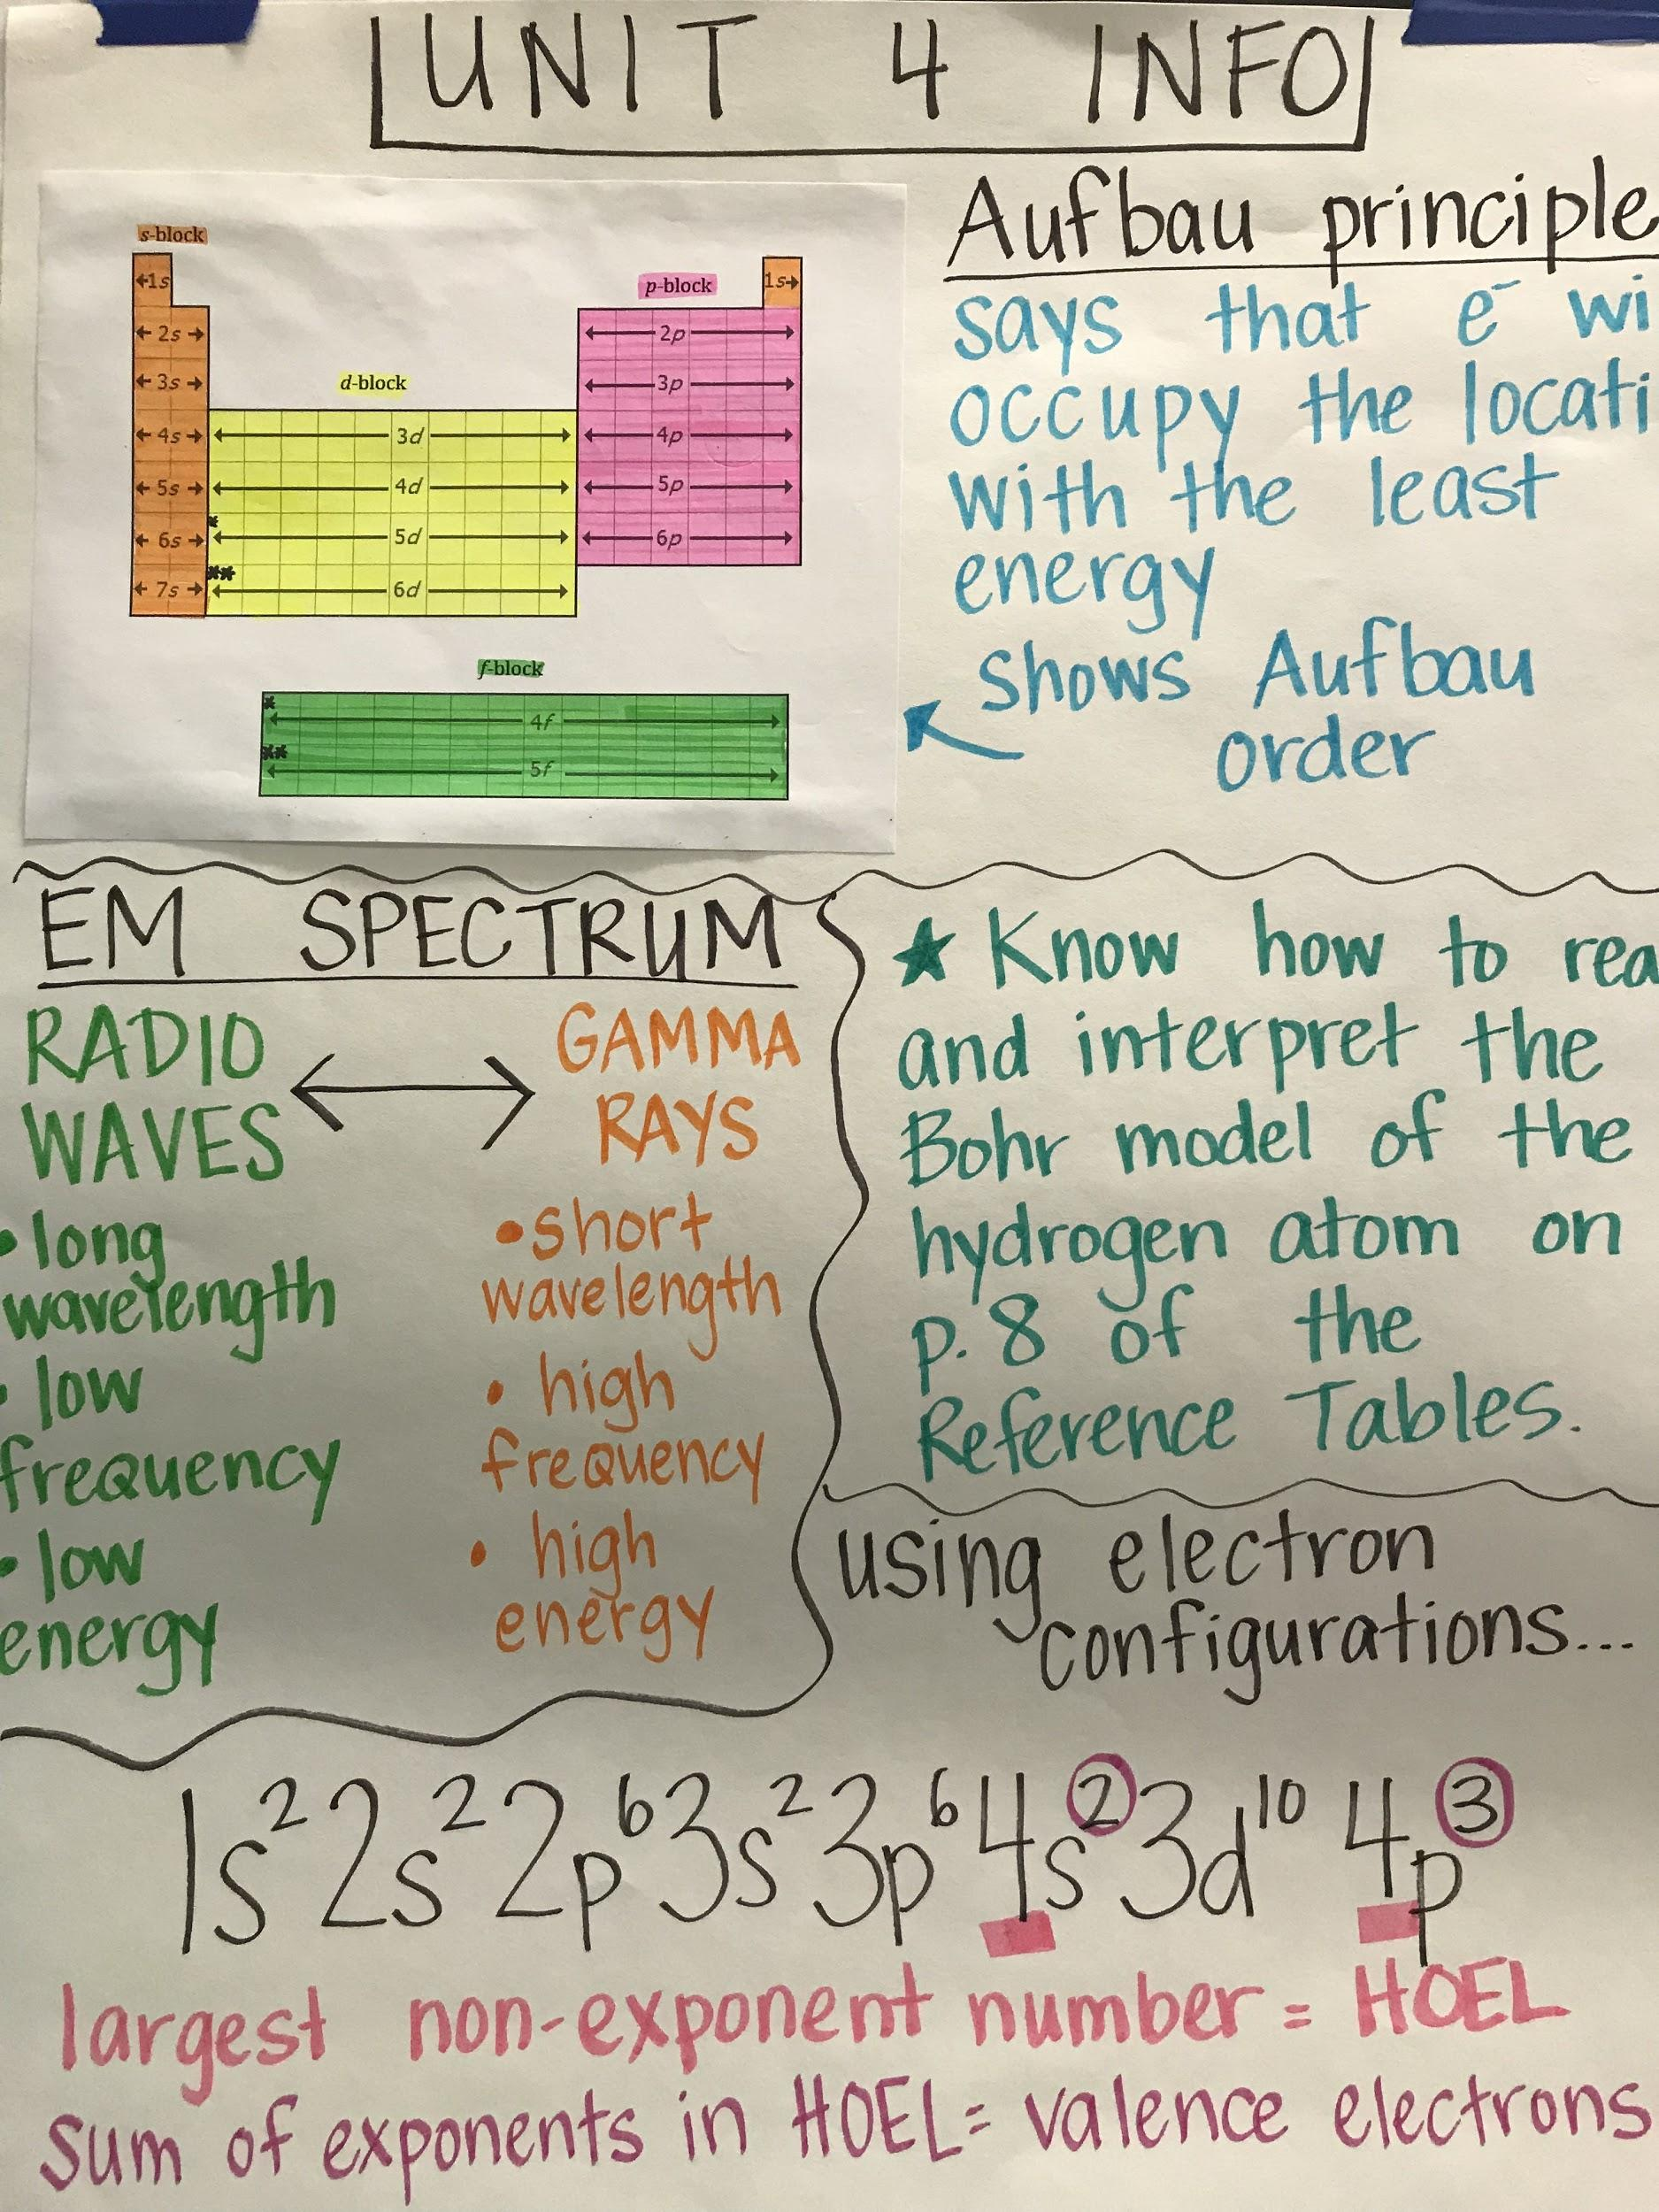 UNIT 4 INFO
s-block
1s
1s
p-block
2s
2p
3s
3p
d-block
4s
3d
4p
5s
4d
5p
*
6s
5d
6p
**
7s
6d
f-block
*
4f
**
5f
Aufbau principle
says that e⁻ wi
occupy the locati
with the least
energy
shows Aufbau
order
EM SPECTRUM
RADIO
WAVES
• long
wavelength
• low
frequency
• low
energy
GAMMA
RAYS
• short
wavelength
• high
frequency
• high
energy
★ Know how to rea
and interpret the
Bohr model of the
hydrogen atom on
p. 8 of the
Reference Tables.
using electron
configurations...
1s² 2s² 2p⁶ 3s² 3p⁶ 4s² 3d¹⁰ 4p³
largest non-exponent number = HOEL
sum of exponents in HOEL = valence electrons